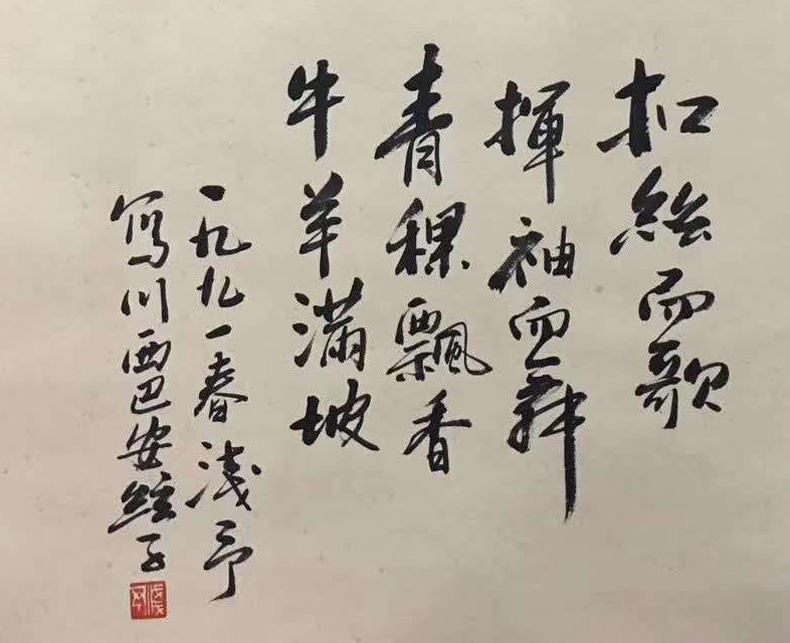 扣絃而歌
揮袖而舞
青稞飄香
牛羊滿坡
一九九一春淺予
寫川西巴安絃子